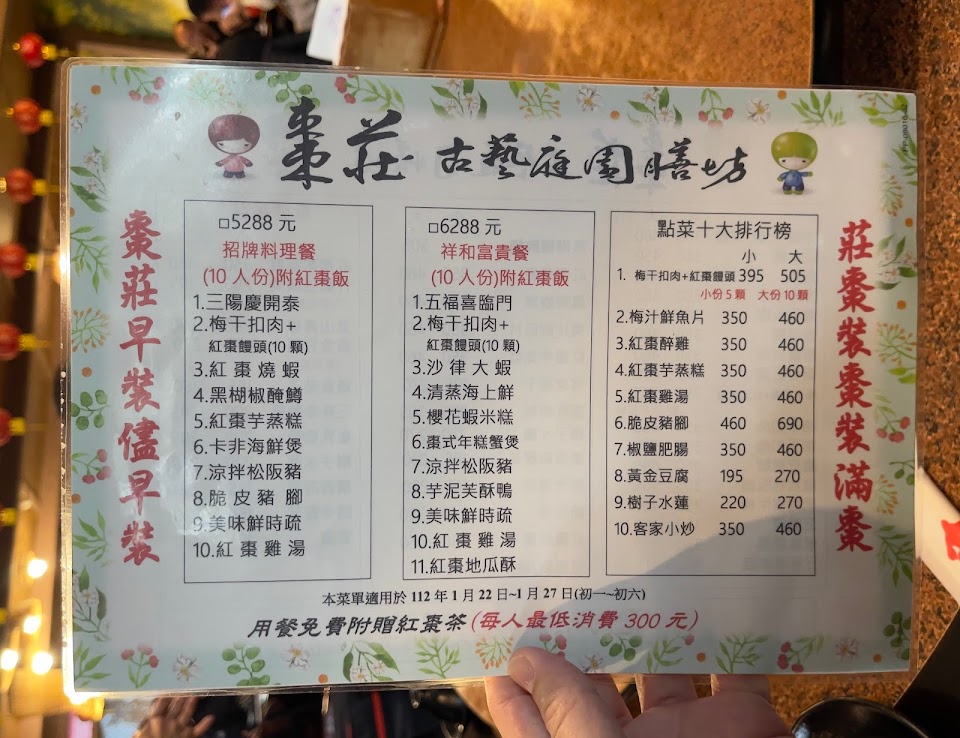 棗莊 古藝庭園膳坊
棗莊早裝儘早裝
□5288 元
招牌料理餐
(10 人份)附紅棗飯
1.三陽慶開泰
2.梅干扣肉+
紅棗饅頭(10 顆)
3.紅棗燒蝦
4.黑椒椒醃鱒
5.紅棗芋蒸糕
6.卡非海鮮煲
7.涼拌松阪豬
8.脆皮豬腳
9.美味鮮時疏
10.紅棗雞湯
□6288 元
祥和富貴餐
(10 人份)附紅棗飯
1.五福喜臨門
2.梅干扣肉+
紅棗饅頭(10 顆)
3.沙律大蝦
4.清蒸海上鮮
5.櫻花蝦米糕
6.棗式年糕蟹煲
7.涼拌松阪豬
8.芋泥芙酥鴨
9.美味鮮時疏
10.紅棗雞湯
11.紅棗地瓜酥
點菜十大排行榜
小 大
1. 梅干扣肉+紅棗饅頭 395 505
小份 5 顆 大份 10 顆
2.梅汁鮮魚片 350 460
3.紅棗醉雞 350 460
4.紅棗芋蒸糕 350 460
5.紅棗雞湯 350 460
6.脆皮豬腳 460 690
7.椒鹽肥腸 350 460
8.黃金豆腐 195 270
9.樹子水蓮 220 270
10.客家小炒 350 460
莊棗裝棗裝滿棗
本菜單適用於 112 年 1 月 22 日~1 月 27 日(初一~初六)
用餐免費附贈紅棗茶(每人最低消費 300 元)